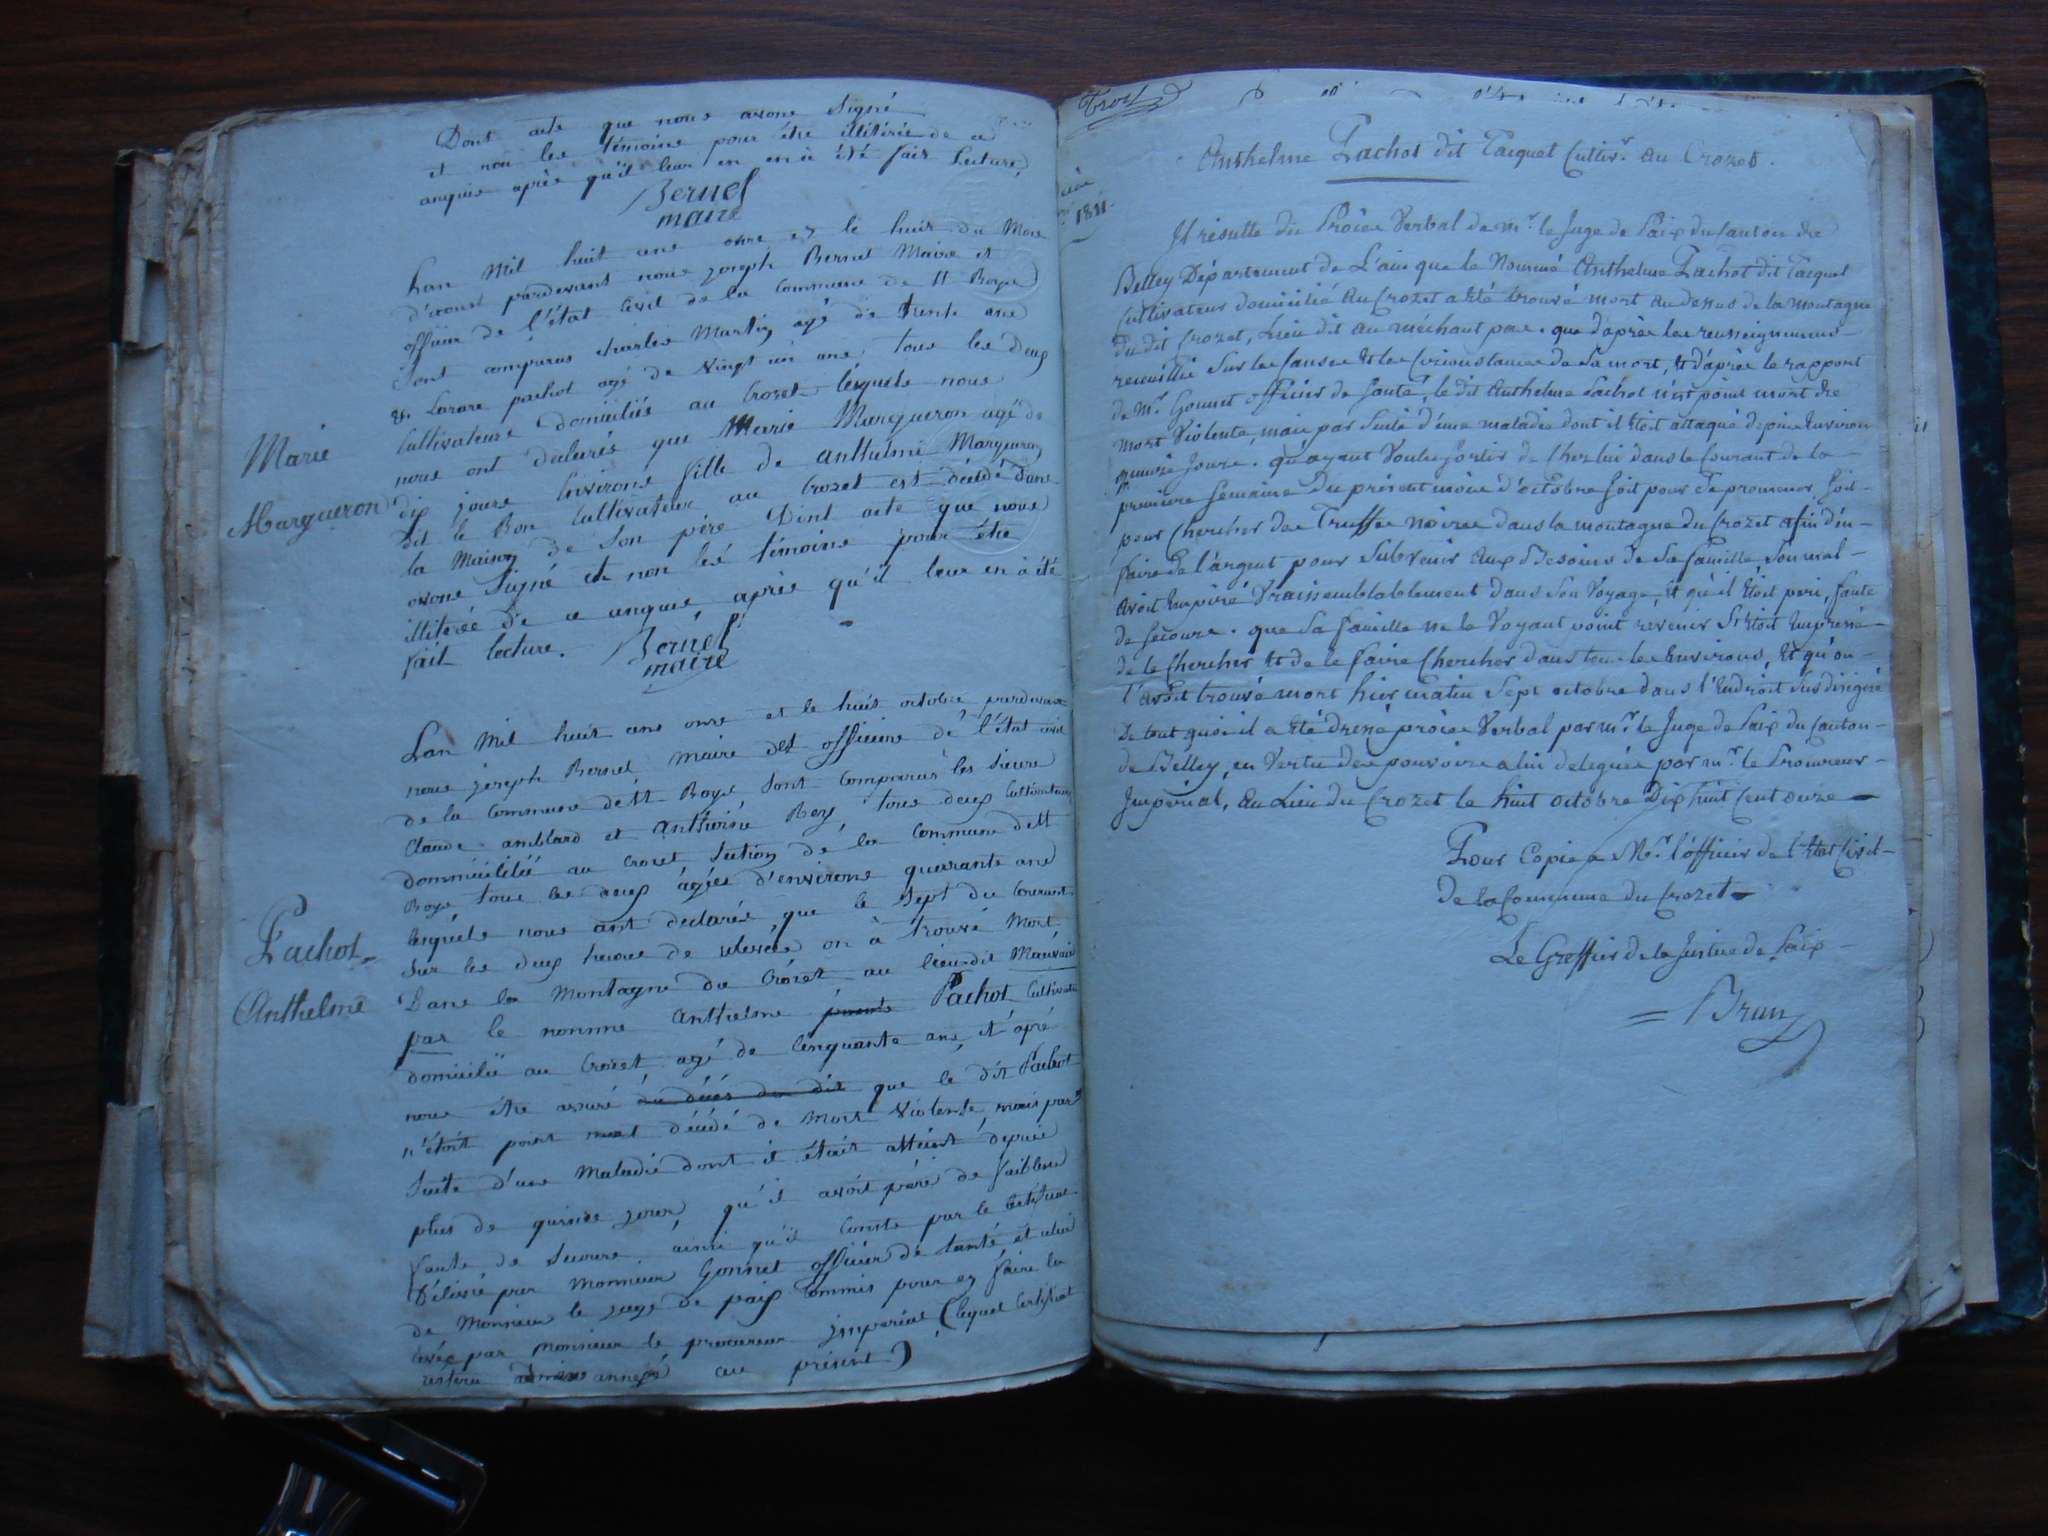 Dont acte que nous avons Signé
et non les témoins pour être illitérés de ce
anquis après qu'il leur en en à été fait Lecture,
Bernel
maire
Lan Mil huit ans onze et le huit du Mois
d'aoust pardevant nous joseph Bernel Maire et
officier de l'état civil de la Commune de St Boys
Sont comparus charles Martin agé de trente ans
& Lazare pachot agé de vingt un ans tous les deux
Cultivateurs domiciliés au Crozet lésquels nous
nous ont declarés que Marie Margueron agé de
dix jours Environs fille de anthelme Margueron
dit le Bon Cultivateur au Crozet est décédé dans
la Maison de Son père Dont acte que nous
avons Signé et non lés témoins pour être
illitéré de ce anquis après qu'il leur en à été
fait lecture. Bernel
maire
Marie
Margueron
Lan Mil huit ans onze et le huit octobre pardevant
nous joseph Bernel maire et officiers de l'état civil
de la Commune de St Boys Sont Comparus lés Sieurs
Claude amblard et anthoine Rey, tous deux Cultivateurs
dommiciliés au Crozet Section dé la Commune de St
Boys tous les deux agées d'environs quarante ans
lesquels nous ont declarés, que le Sept du Courant
Sur les deux heures de relevée on à trouvé Mort
Dans la Montagne du Crozet au lieu dit Mauvais
pas le nommé anthelme Pachot Cultivateur
domicilié au Crozet agé de Cinquante ans, et aprés
nous étre assuré du décés du dit que le dit Pachot
n'étoit point mort décédé de Mort Violente, mais par
Suite d'une Maladie dont il était atteint depuis
plus de quinze jours, qu'il avoit péri de faiblesse
faute de Secours, ainsi qu'il Conste par le certificat
Délivré par Monsieur Gonnet officier de Santé et celui
de Monsieur le juge de paix Commis pour en faire la
levée par Monsieur le procureur imperial (lequel Certificat
restera annexé au présent)
Pachot
Anthelme
1811
Anthelme Pachot dit Tacquet Cultivr. au Crozet.
Il résulte du Procès Verbal de mr. le Juge de Paix du Canton de
Belley Département de L'ain que le Nommé Anthelme Pachot dit Tacquet
Cultivateur domicilié au Crozet a été trouvé mort au dessus de la montagne
du dit Crozet, Lieu dit au méchant pas. que d'après les renseignements
recueillis Sur les Causes et les Circonstances de Sa mort, et d'après le rapport
de Mr. Gonnet officier de Santé, le dit Anthelme Pachot n'est point mort de
mort Violente, mais par Suite d'une maladie dont il étoit attaqué depuis Environ
quinze Jours. qu'ayant Voulu Sortir de Chez lui dans le Courant de la
premiere Semaine du présent mois d'octobre Soit pour Se promener, Soit
pour Chercher des Truffes noires dans la montagne du Crozet afin d'en
faire de l'argent pour Subvenir aux Besoins de Sa famille, Son mal
avoit Empiré Vraissemblablement dans Son Voyage, et qu'il étoit peri, faute
de Secours. que Sa famille ne le Voyant point revenir S'étoit Empressé
de le Chercher et de le faire Chercher dans tous les Environs, et qu'on
l'avoit trouvé mort hier matin Sept octobre dans l'Endroit Sus désigné
De tout quoi il a été dressé procès Verbal par mr. le Juge de Paix du Canton
de Belley, en Vertu des pouvoirs a lui delegués par mr. le Procureur
Impérial, au Lieu du Crozet le huit octobre Dix huit Cent onze
Pour Copie a Mr. l'officier de l'Etat Civil
De la Commune du Crozet
Le Greffier de la Justice de Paix
Brun